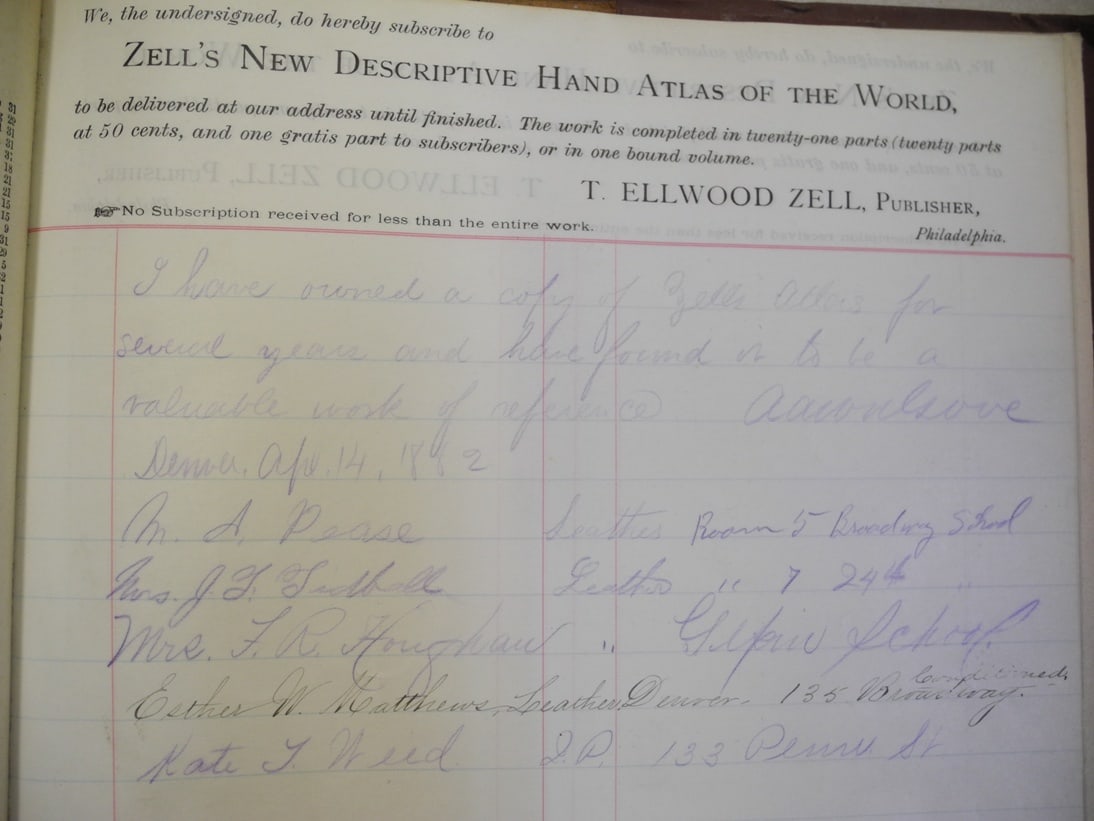 We, the undersigned, do hereby subscribe to
ZELL'S NEW DESCRIPTIVE HAND ATLAS OF THE WORLD,
to be delivered at our address until finished. The work is completed in twenty-one parts (twenty parts
at 50 cents, and one gratis part to subscribers), or in one bound volume.
T. ELLWOOD ZELL, PUBLISHER,
☞No Subscription received for less than the entire work.
Philadelphia.
I have owned a copy of Zells Atlas for
several years and have found it to be a
valuable work of reference
Denver, Apl. 14, 1882
M. A. Pease Leather Room 5 Broadway School
Mrs. J. F. Leather " 7 24th "
Mrs. F. R. " Gilpin School.
Conditioned
Esther W. Matthews, Leather, Denver. 135 Broadway.
Kate T. Weed 133 Penn St